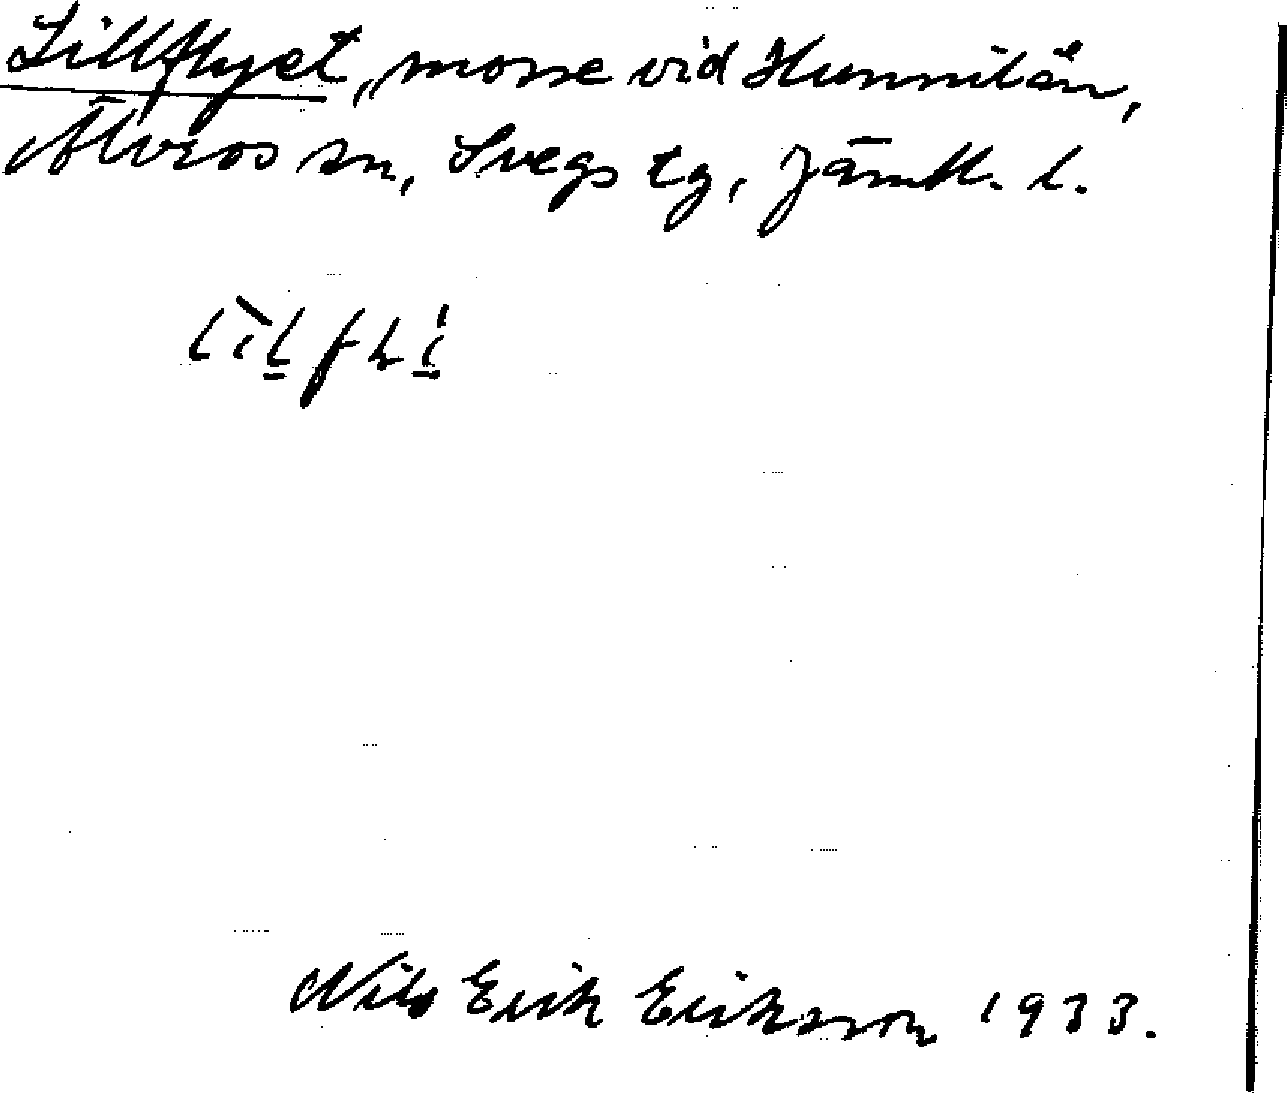 Lillflyet, mosse vid Hunnilån,
Älvros sn, Svegs tg, Jämtl. l.
Nils Erik Eriksson 1933.